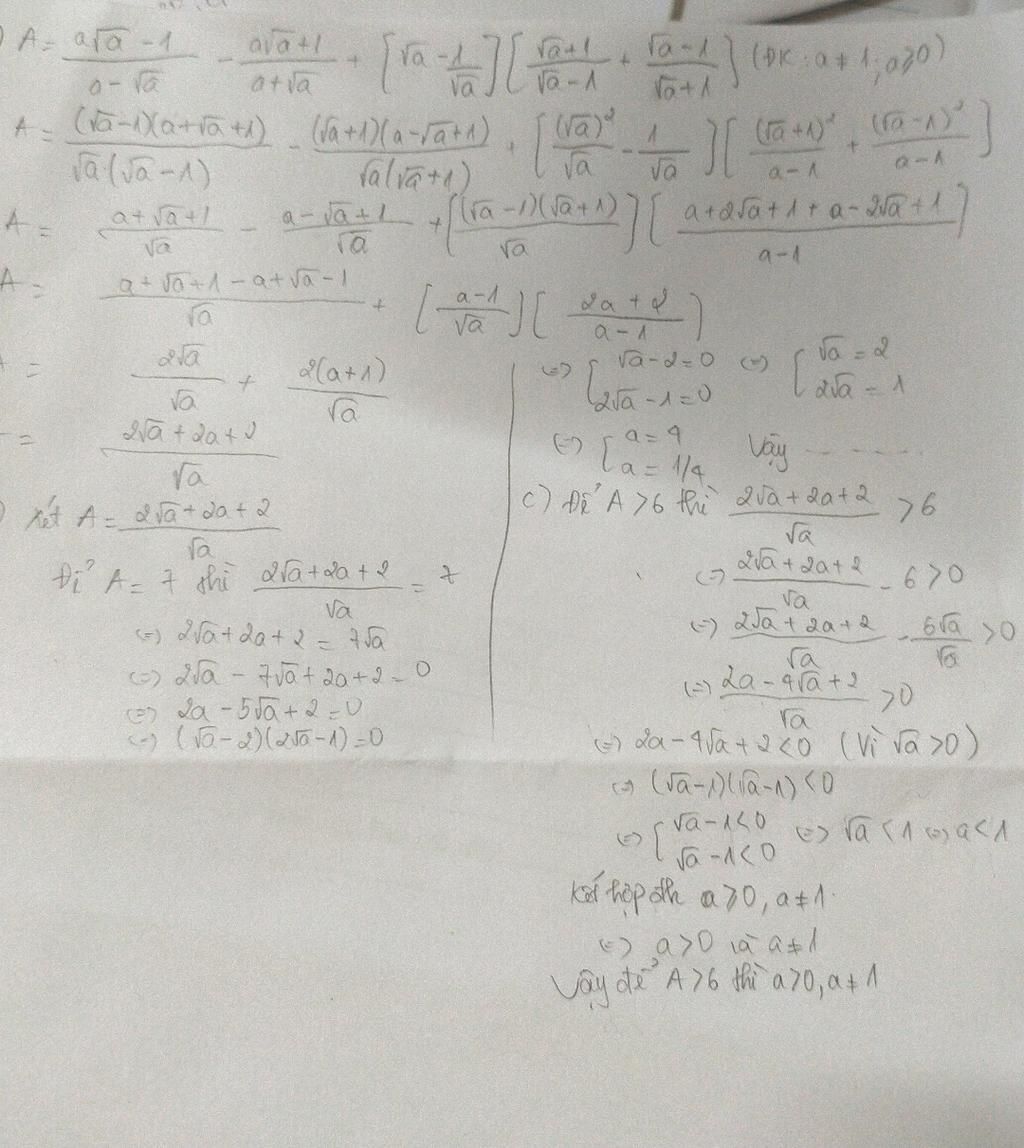 ) A = \frac{a\sqrt{a} - 1}{a - \sqrt{a}} - \frac{a\sqrt{a} + 1}{a + \sqrt{a}} + [\sqrt{a} - \frac{1}{\sqrt{a}}][\frac{\sqrt{a}+1}{\sqrt{a}-1} + \frac{\sqrt{a}-1}{\sqrt{a}+1}] (ĐK: a ≠ 1; a ⩾ 0)
A = \frac{(\sqrt{a}-1)(a+\sqrt{a}+1)}{\sqrt{a}(\sqrt{a}-1)} - \frac{(\sqrt{a}+1)(a-\sqrt{a}+1)}{\sqrt{a}(\sqrt{a}+1)} + [\frac{(\sqrt{a})^2}{\sqrt{a}} - \frac{1}{\sqrt{a}}][\frac{(\sqrt{a}+1)^2}{a-1} + \frac{(\sqrt{a}-1)^2}{a-1}]
A = \frac{a+\sqrt{a}+1}{\sqrt{a}} - \frac{a-\sqrt{a}+1}{\sqrt{a}} + [\frac{(\sqrt{a}-1)(\sqrt{a}+1)}{\sqrt{a}}][\frac{a+2\sqrt{a}+1+a-2\sqrt{a}+1}{a-1}]
A = \frac{a+\sqrt{a}+1-a+\sqrt{a}-1}{\sqrt{a}} + [\frac{a-1}{\sqrt{a}}][\frac{2a+2}{a-1}]
= \frac{2\sqrt{a}}{\sqrt{a}} + \frac{2(a+1)}{\sqrt{a}}
= \frac{2\sqrt{a}+2a+2}{\sqrt{a}}
) Xét A = \frac{2\sqrt{a}+2a+2}{\sqrt{a}}
Để A = 7 thì \frac{2\sqrt{a}+2a+2}{\sqrt{a}} = 7
(=) 2\sqrt{a}+2a+2 = 7\sqrt{a}
(=) 2\sqrt{a} - 7\sqrt{a} + 2a+2 = 0
(=) 2a - 5\sqrt{a} + 2 = 0
(=) (\sqrt{a}-2)(2\sqrt{a}-1) = 0
(=) [ \sqrt{a}-2=0 (=) [ \sqrt{a} = 2
2\sqrt{a}-1=0 2\sqrt{a} = 1
(=) [ a = 4 Vậy .......
a = 1/4
c) Để A > 6 thì \frac{2\sqrt{a}+2a+2}{\sqrt{a}} > 6
(=) \frac{2\sqrt{a}+2a+2}{\sqrt{a}} - 6 > 0
(=) \frac{2\sqrt{a}+2a+2}{\sqrt{a}} - \frac{6\sqrt{a}}{\sqrt{a}} > 0
(=) \frac{2a-4\sqrt{a}+2}{\sqrt{a}} > 0
(=) 2a-4\sqrt{a}+2 < 0 (Vì \sqrt{a} > 0)
(=) (\sqrt{a}-1)(\sqrt{a}-1) < 0
(=) [ \sqrt{a}-1 < 0 (=) \sqrt{a} < 1 (=) a < 1
\sqrt{a}-1 < 0
Kết hợp đk a ⩾ 0, a ≠ 1.
(=) a > 0 và a ≠ 1
Vậy để A > 6 thì a > 0, a ≠ 1